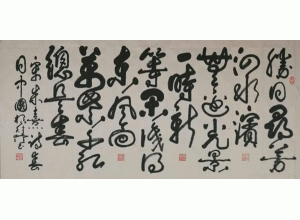 勝日尋芳
泗水濱
無邊光景
一時新
等閑識得
東風面
萬紫千紅
總是春
宋朱熹詩春
日中國